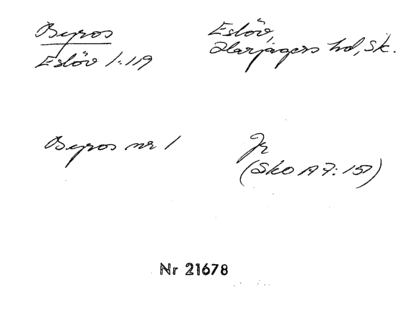 Byros
Eslöv 1:119
Eslöv,
Harjagers hd, Sk.
Byros nr 1
Jr
(SkO A 7: 151)
Nr 21678